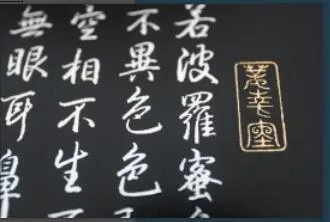 若波羅蜜
不異色色
空相不生不
無眼耳鼻